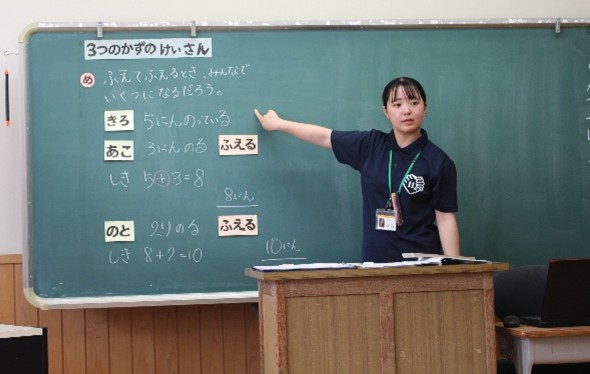 3つのかずの けいさん
め ふえてふえるとき、みんなで
いくつになるだろう。
きろ 5にんのっている
あこ 3にんのる ふえる
しき 5+3=8
8にん
のと 2りのる ふえる
しき 8+2=10
10にん